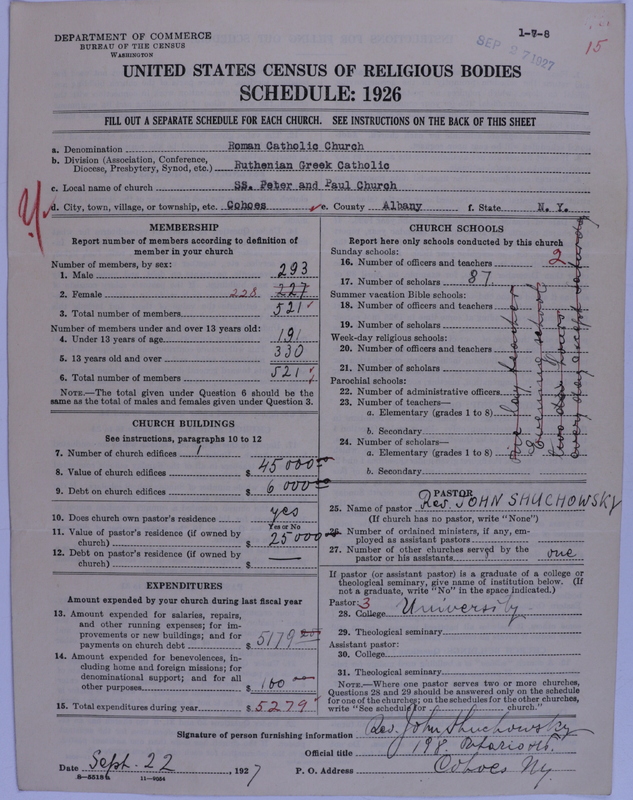 DEPARTMENT OF COMMERCE
BUREAU OF THE CENSUS
WASHINGTON
1-7-8
SEP 27 1927
15
UNITED STATES CENSUS OF RELIGIOUS BODIES
SCHEDULE: 1926
FILL OUT A SEPARATE SCHEDULE FOR EACH CHURCH. SEE INSTRUCTIONS ON THE BACK OF THIS SHEET
a. Denomination Roman Catholic Church
b. Division (Association, Conference,
Diocese, Presbytery, Synod, etc.) Ruthenian Greek Catholic
c. Local name of church SS. Peter and Paul Church
d. City, town, village, or township, etc. Cohoes e. County Albany f. State N. Y.
MEMBERSHIP
Report number of members according to definition of
member in your church
Number of members, by sex:
1. Male 293
2. Female 228 227
3. Total number of members 521
Number of members under and over 13 years old:
4. Under 13 years of age 191
5. 13 years old and over 330
6. Total number of members 521
NOTE.—The total given under Question 6 should be
the same as the total of males and females given under Question 3.
CHURCH BUILDINGS
See instructions, paragraphs 10 to 12
7. Number of church edifices 1
8. Value of church edifices $ 45000 00
9. Debt on church edifices $ 6000 00
10. Does church own pastor's residence yes
Yes or No
11. Value of pastor's residence (if owned by
church) $ 25000
12. Debt on pastor's residence (if owned by
church) $ —
EXPENDITURES
Amount expended by your church during last fiscal year
13. Amount expended for salaries, repairs,
and other running expenses; for im-
provements or new buildings; and for
payments on church debt $ 5179
14. Amount expended for benevolences, in-
cluding home and foreign missions; for
denominational support; and for all
other purposes $ 100
15. Total expenditures during year $ 5279
CHURCH SCHOOLS
Report here only schools conducted by this church
Sunday schools:
16. Number of officers and teachers 2
17. Number of scholars 87
Summer vacation Bible schools:
18. Number of officers and teachers
19. Number of scholars
Week-day religious schools:
20. Number of officers and teachers
21. Number of scholars
Parochial schools:
22. Number of administrative officers
23. Number of teachers—
a. Elementary (grades 1 to 8)
b. Secondary
24. Number of scholars—
a. Elementary (grades 1 to 8)
b. Secondary
one lay teacher
Evening school
two hours
every day except saturday
PASTOR
25. Name of pastor Rev. JOHN SHUCHOWSKY
(If church has no pastor, write "None")
26. Number of ordained ministers, if any, em-
ployed as assistant pastors
27. Number of other churches served by the
pastor or his assistants one
If pastor (or assistant pastor) is a graduate of a college or
theological seminary, give name of institution below. (If
not a graduate, write "No" in the space indicated.)
Pastor: 3
28. College University
29. Theological seminary
Assistant pastor:
30. College
31. Theological seminary
NOTE.—Where one pastor serves two or more churches,
Questions 28 and 29 should be answered only on the schedule
for one of the churches; on the schedules for the other churches,
write "See schedule for church."
Signature of person furnishing information Rev. John Shuchowsky
Official title 198. Ontario St.
Date Sept. 22, 1927 P. O. Address Cohoes Ny.
11—9554